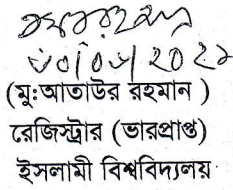 (মু:আতাউর রহমান )
রেজিস্ট্রার (ভারপ্রাপ্ত)
ইসলামী বিশ্ববিদ্যালয়